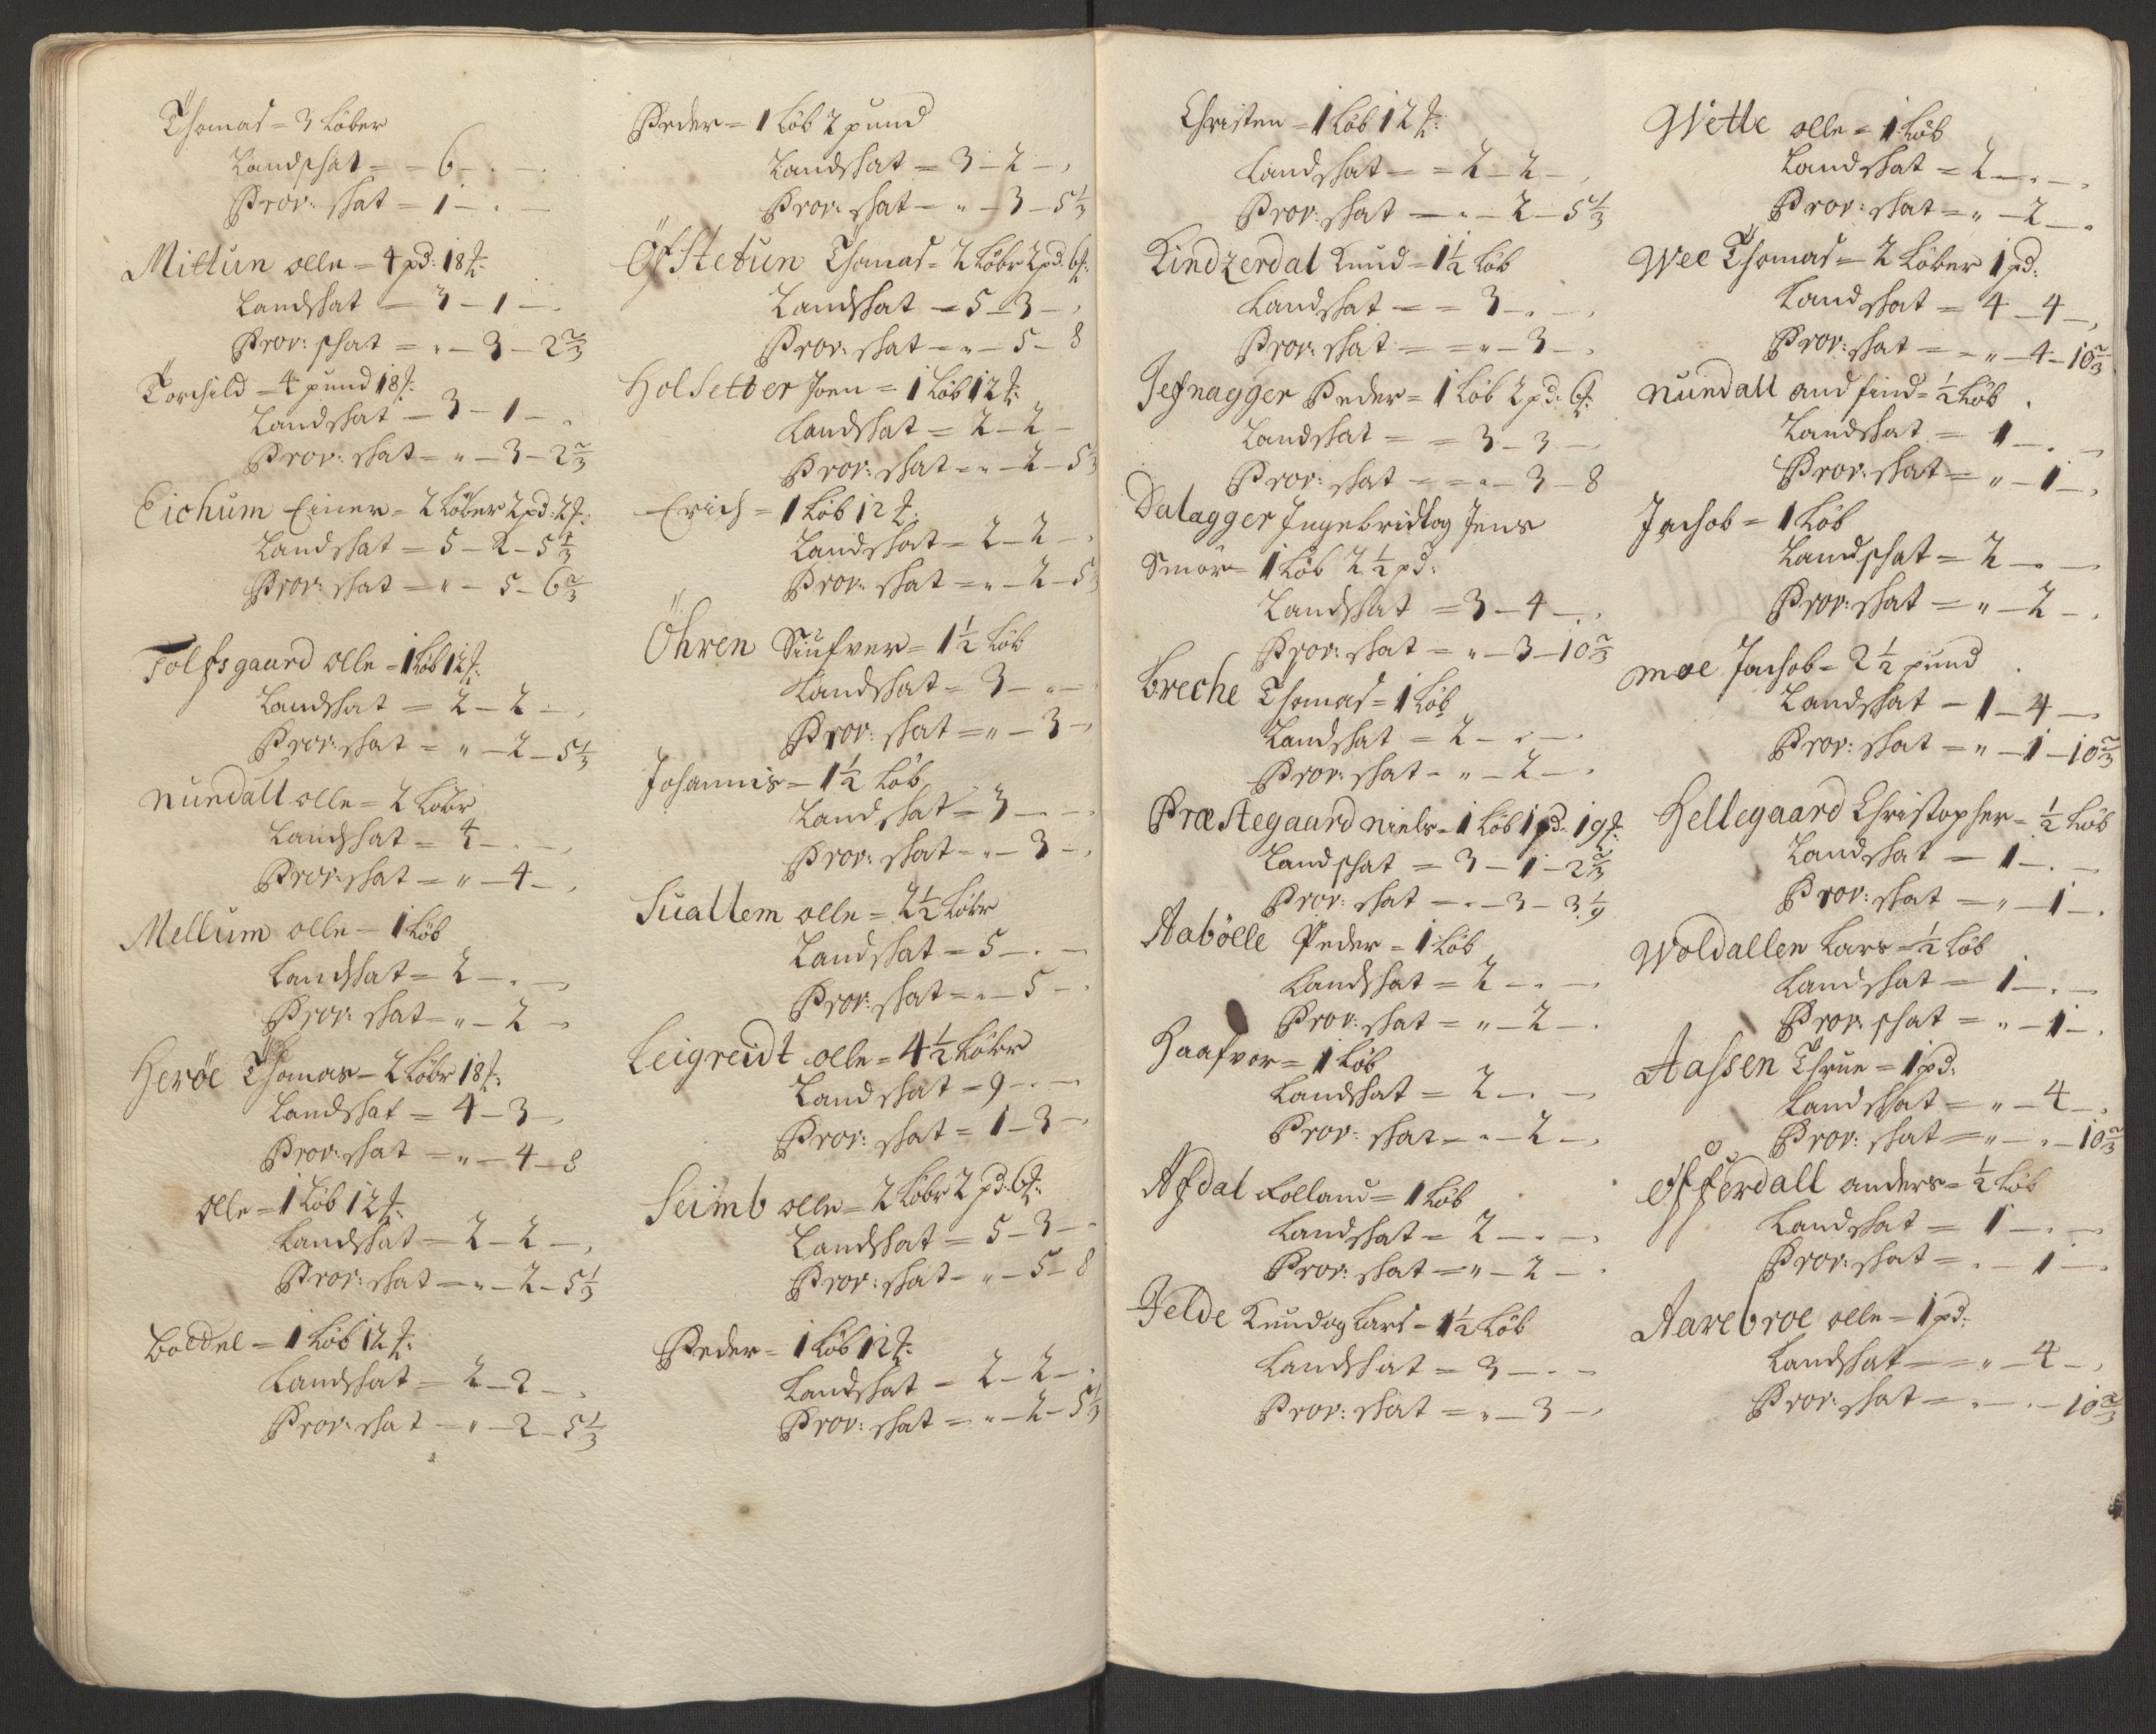 Thomas = 3 Löber
Landschat = – 6 – . – .
Prov: schat = 1 – . –
Mittun olle = 4 pd: 18 ℔:
Landschat = 3 – 1 – .
Prov: schat = " – 3 – 2 2/3
Torchild = 4 pund 18 ℔:
Landschat – 3 – 1 – .
Prov: schat = " – 3 – 2 2/3
Eichum Einer = 2 Löber 2 pd: 2 ℔:
Landschat = 5 – 2 – 5 1/3
Prov: schat = " – 5 – 6 2/3
Tolfsgaard olle = 1 Löb 12 ℔:
Landschat = 2 – 2 – ,
Prov: schat = " – 2 – 5 1/3
Nundall olle = 2 Löbr
Landschat = 4 – . – ,
Prov: schat = " – 4 – ,
Mellum olle = 1 Löb
Landschat = 2 – . –
Prov: schat = " – 2 –
Heröe Thomas = 2 Löbr 18 ℔:
Landschat = 4 – 3 – ,
Prov: schat = " – 4 – 8
olle = 1 Löb 12 ℔:
Landschat = 2 – 2 – ,
Prov: schat = " – 2 – 5 1/3
Boedel = 1 Löb 12 ℔:
Landschat = 2 – 2 – .
Prov: schat = " – 2 – 5 1/3
Peder = 1 Löb 2 pund
Landschat = 3 – 2 – ,
Prov: schat = " – 3 – 5 1/3
Öfstetun Thomas = 2 Löbr 2 pd: 6 ℔:
Landschat = 5 – 3 – ,
Prov: schat = " – 5 – 8
Holsetter Joen = 1 Löb 12 ℔:
Landschat = 2 – 2 –
Prov: schat = " – 2 – 5 1/3
Erich = 1 Löb 12 ℔:
Landschat = 2 – 2 – .
Prov: schat = " – 2 – 5 1/3
Öhren Siufver = 1 1/2 Löb
Landschat = 3 – . –
Prov: schat = " – 3 –
Johannis = 1 1/2 Löb
Landschat = 3 – . –
Prov: schat = " – 3 – ,
Suallem olle = 2 1/2 Löbr
Landschat = 5 – . –
Prov: schat = " – 5 – .
Leigreidt olle = 4 1/2 Löbr
Landschat = 9 – . –
Prov: schat = 1 – 3 –
Seimb olle = 2 Löbr 2 pd: 6 ℔:
Landschat = 5 – 3 –
Prov: schat = " – 5 – 8
Peder = 1 Löb 12 ℔:
Landschat = 2 – 2 – .
Prov: schat = " – 2 – 5 1/3
Christen = 1 Löb 12 ℔:
Landschat = = 2 – 2 – ,
Prov: schat = " – 2 – 5 1/3
Kindzerdal Knud = 1 1/2 Löb
Landschat = = 3 – . – ,
Prov: schat = = " – 3 – .
Jefnagger Peder = 1 Löb 2 pd: 6 ℔:
Landschat = = 3 – 3 –
Prov: schat = = " – 3 – 8
Dalagger Ingebridt og Jens
Smör = 1 Löb 2 1/2 pd:
Landschat = 3 – 4 – .
Prov: schat = " – 3 – 10 2/3
Breche Thomas = 1 Löb
Landschat = 2 – . – .
Prov: schat = " – 2 – .
Præstegaard Niels = 1 Löb 1 pd: 19 ℔:
Landschat = 3 – 1 – 2 2/3
Prov: schat = " – 3 – 3 1/9
Aabölle Peder = 1 Löb
Landschat = 2 – . –
Prov: schat = " – 2 – .
Haafvor = 1 Löb
Landschat = 2 – . –
Prov: schat = " – 2 – ,
Afdal Folland = 1 Löb
Landschat = 2 – . –
Prov: schat = " – 2 – .
Jelde Knud og Lars = 1 1/2 Löb
Landschat = 3 – . –
Prov: schat = " – 3 – ,
Wette olle = 1 Löb
Landschat = 2 – . – ,
Prov: schat = " – 2 – .
Wee Thomas = 2 Löber 1 pd:
Landschat = 4 – 4 – ,
Prov: schat = – " – 4 – 10 2/3
Nundall and find = 1/2 Löb
Landschat = 1 – . –
Prov: schat = " – 1 – ,
Jachob = 1 Löb
Landschat = 2 – . –
Prov: schat = " – 2 – .
Moe Jachob = 2 1/2 pund
Landschat – 1 – 4 – .
Prov: schat = " – 1 – 10 2/3
Hellegaard Christopher = 1/2 Löb
Landschat = 1 – . –
Prov: schat = " – 1 – .
Woldallen Lars = 1/2 Löb
Landschat = 1 – . –
Prov: schat = " – 1 – .
Aassen Thrue = 1 pd:
Landschat = " – 4 – .
Prov: schat = " – " – 10 2/3
Offerdall anders = 1/2 Löb
Landschat = 1 – . –
Prov: schat = " – 1 – .
Aarebroe olle = 1 pd:
Landschat = = " – 4 – ,
Prov: schat = " – . – 10 2/3